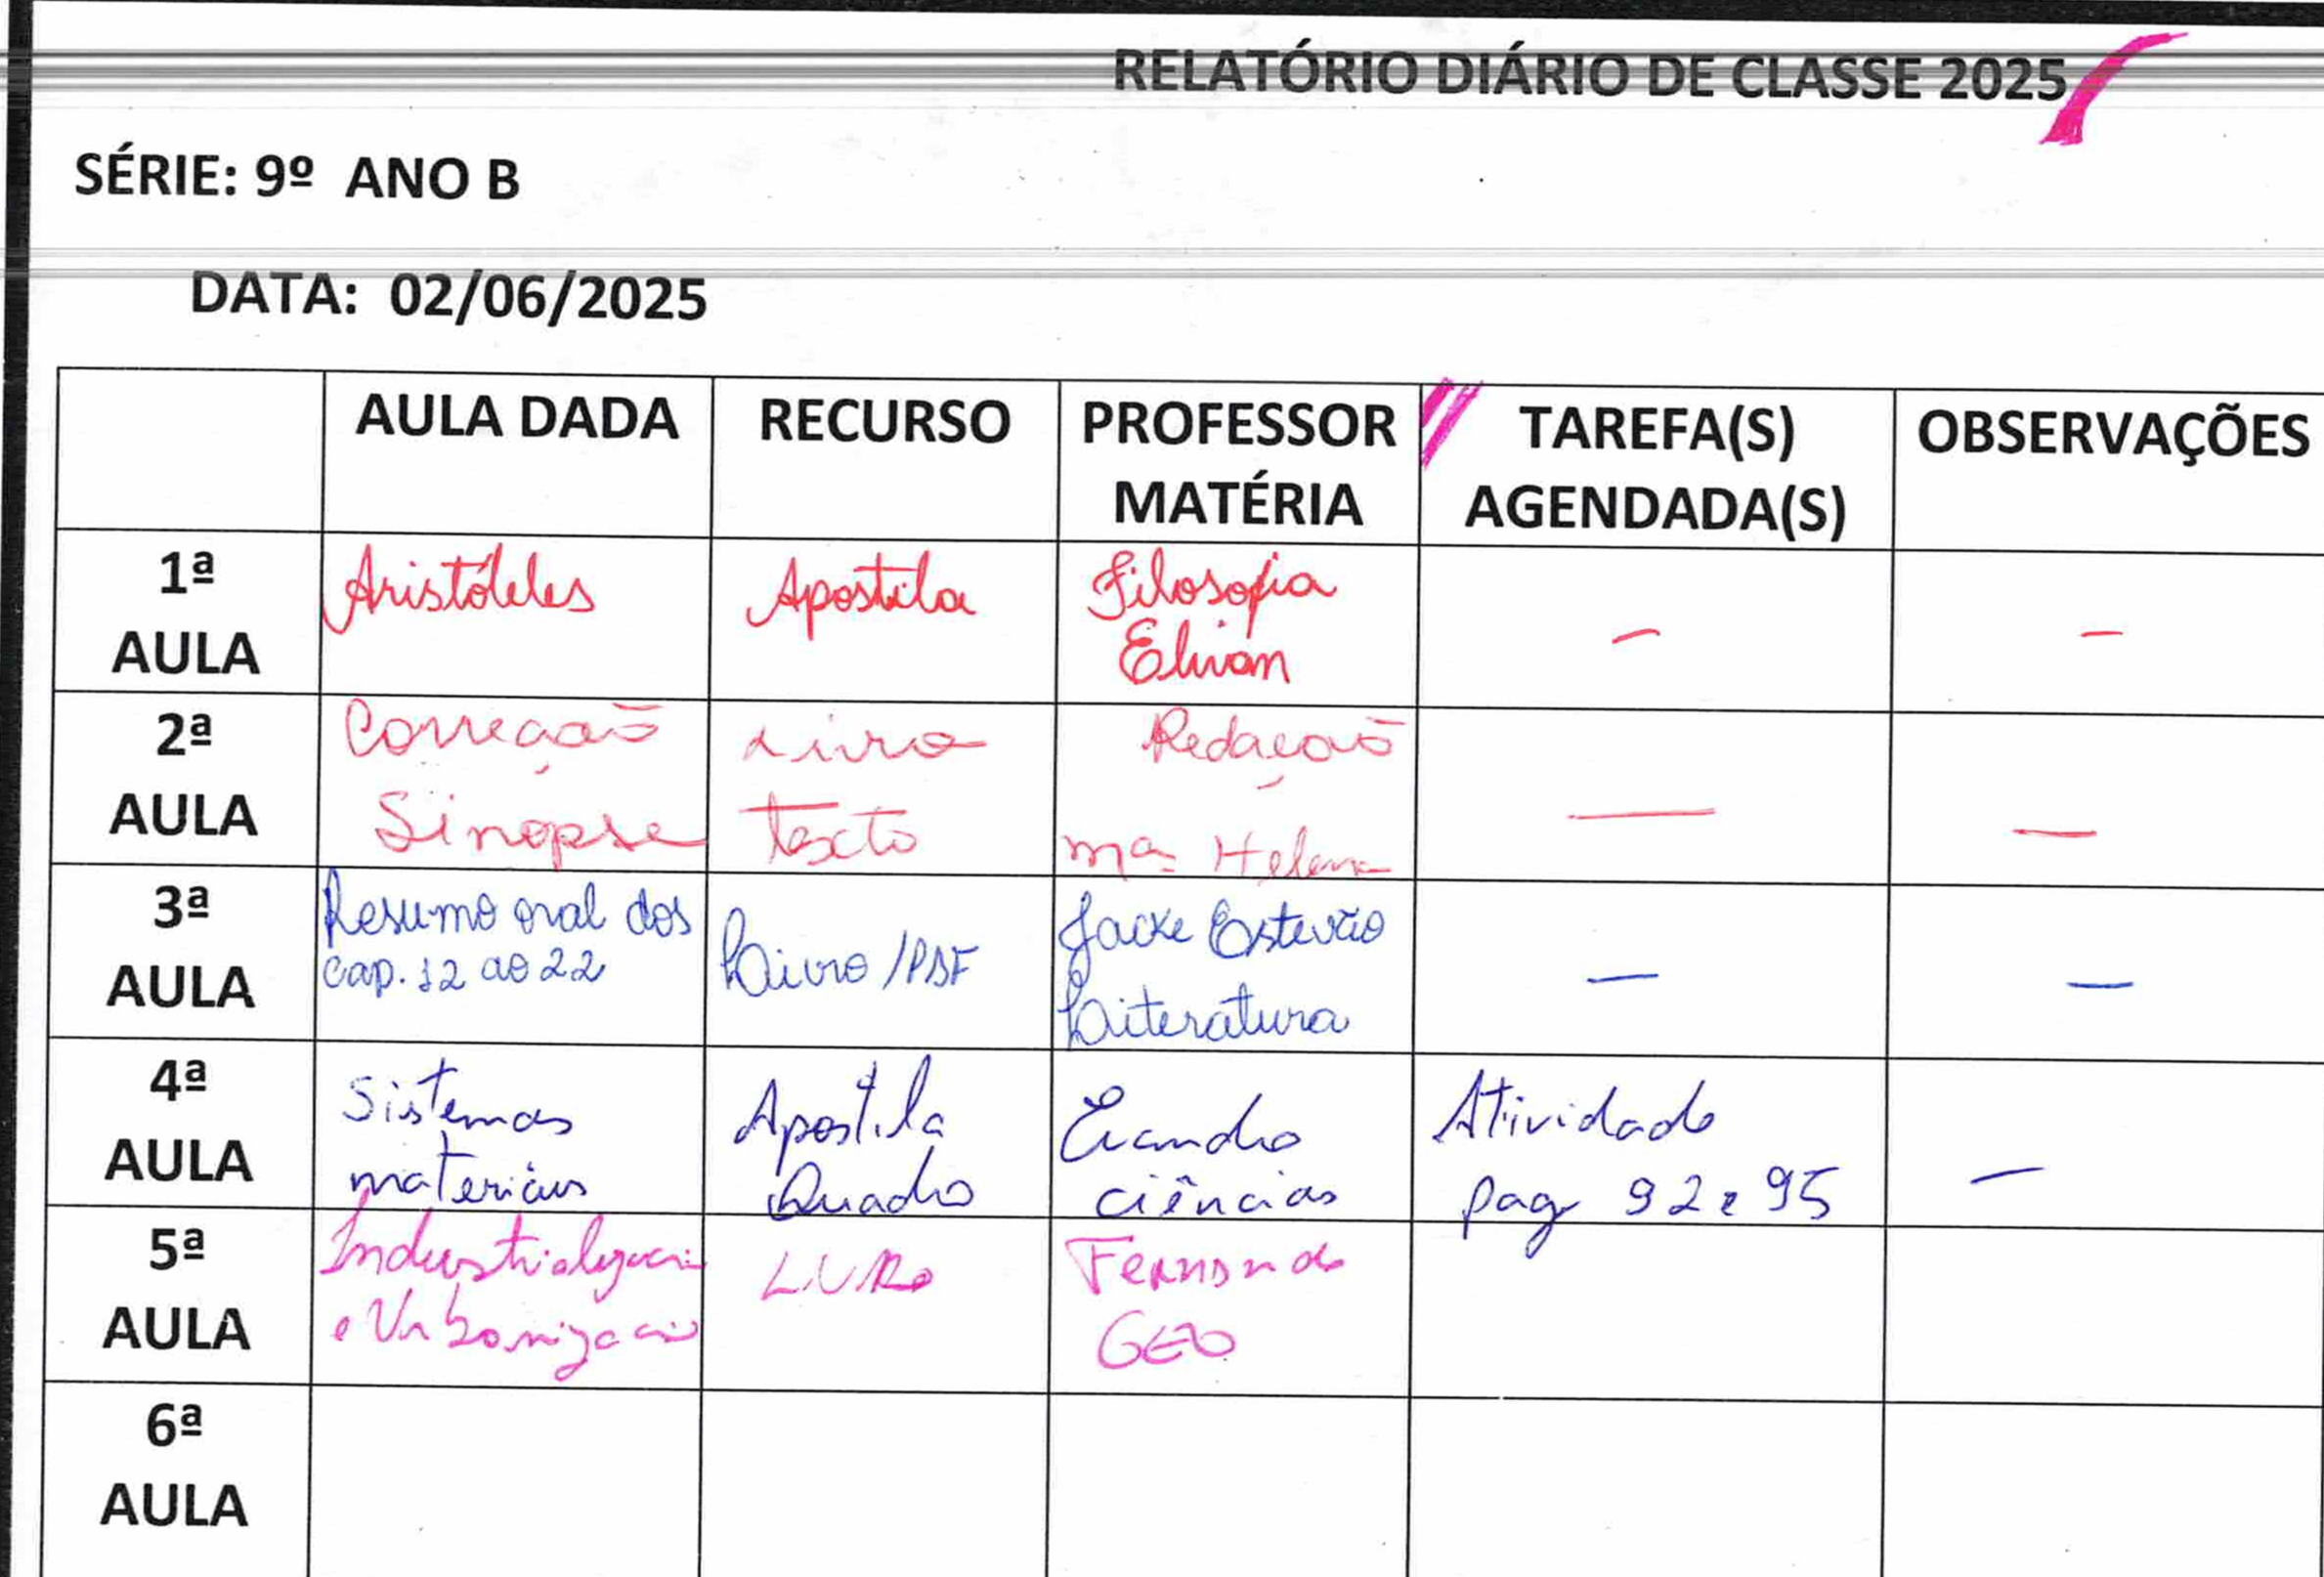 RELATÓRIO DIÁRIO DE CLASSE 2025
SÉRIE: 9º ANO B
DATA: 02/06/2025
AULA DADA
RECURSO
PROFESSOR
MATÉRIA
TAREFA(S)
AGENDADA(S)
OBSERVAÇÕES
1ª
AULA
Aristóteles
Apostila
Filosofia
Elivan
-
-
2ª
AULA
Correção
Sinopse
Livro
Texto
Redação
Mª Helena
-
-
3ª
AULA
Resumo oral dos
cap. 12 ao 22
Livro/PDF
Jacke Estevão
Literatura
-
-
4ª
AULA
Sistemas
materiais
Apostila
Quadro
Evandro
ciências
Atividade
pag 92 e 95
-
5ª
AULA
e Urbanização
LIVRO
Fernando
GEO
6ª
AULA